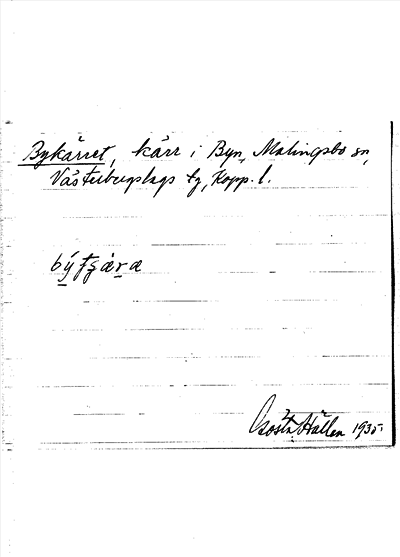 Bykärret, kärr i Byn, Malingsbo sn,
Västerbergslags tg, Kopp. l.
Gösta Hallen 1935